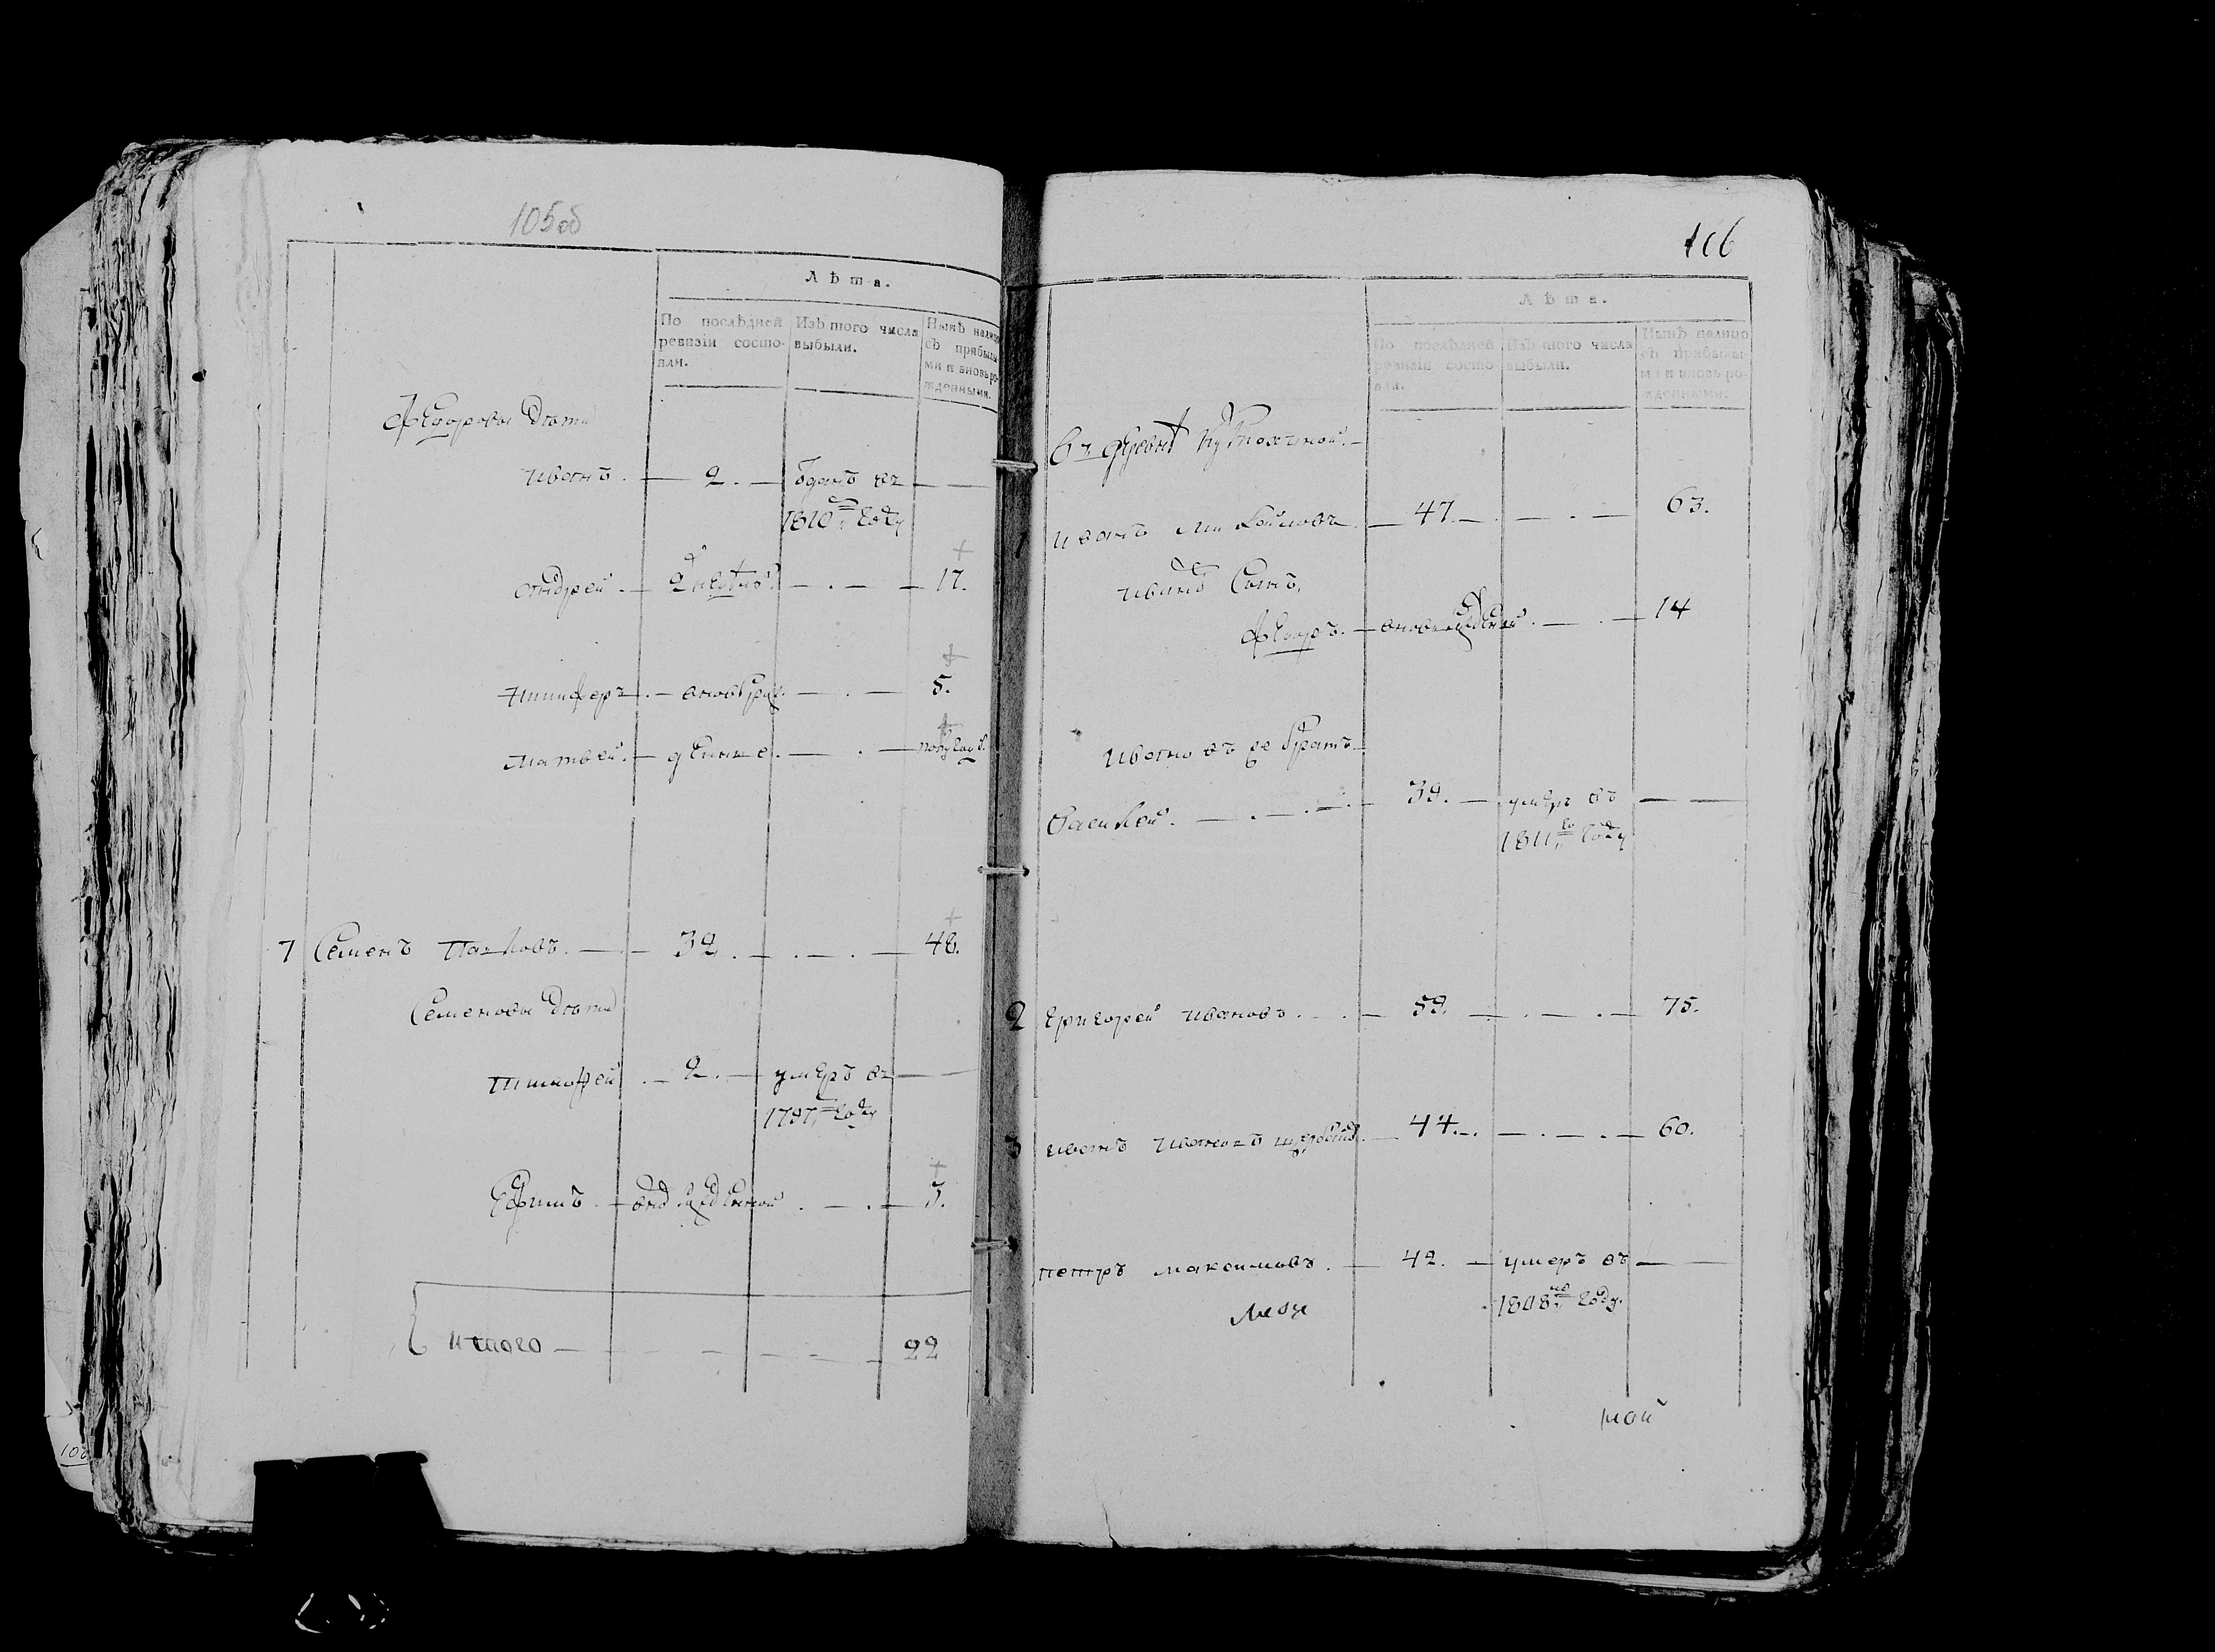 105об
Лѣта.
По послѣдней ревизіи состояли.
Изъ того числа выбыли.
Нынѣ налицо съ прибылыми и вновь рожденными.
Федоровы дѣти
иванъ. — 2. — отданъ въ —
1810м году
андрей. — 2 недѣль — . — 17.
никифоръ. — вновь рож — . — 5.
матвей. — денные. — . — полугоду
7 Семенъ Павловъ. — 32. — . — . — 48.
Семеновы дѣти
тимофей . — 2. — умеръ въ —
1797м году
Ефимъ. — вновь рожденной . — . — 3.
итого — 22
106
Лѣта.
По послѣдней ревизіи состояли.
Изъ того числа выбыли.
Нынѣ налицо съ прибылыми и вновь рожденными.
въ деревнѣ
1 иванъ михайловъ. — 47. — . — 63.
ивана Сынъ.
Федоръ. — вновь рожденной . — . — 14
иванов братъ
василей. — . — . — 39. — умеръ въ —
1811го году
2 григорей ивановъ. — . — 59. — . — . — 75.
3 иванъ ивановъ — 44. — . — . — 60.
петръ максимовъ. — 42. — умеръ въ —
1808м году.